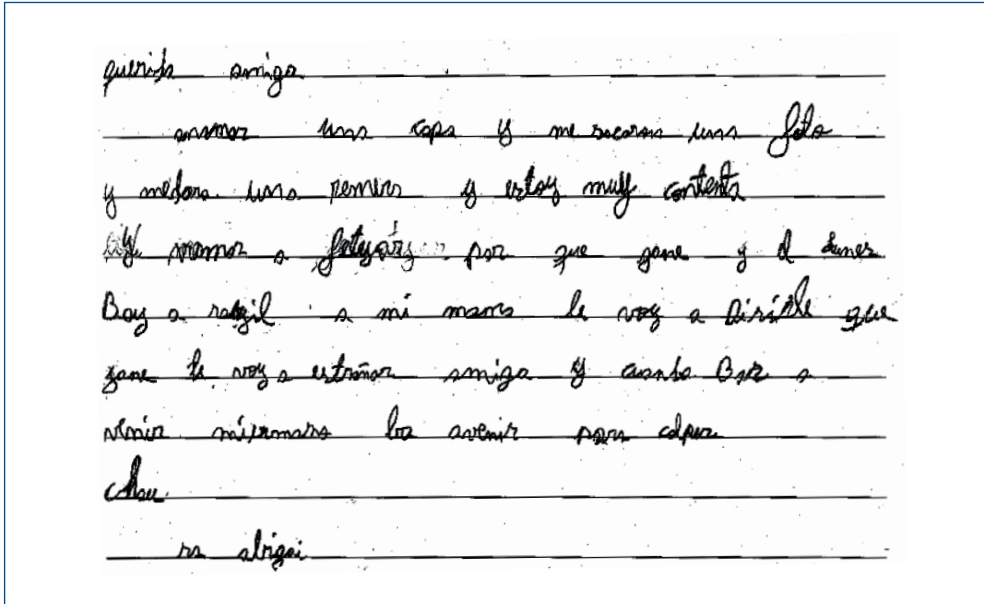 querida amiga
una copa y me sacaron una foto
y medaron una remera y estoy muy contenta
y vamos a festejar por que gane y el lunes
Boy a a mi mama le voy a Dirile que
gane te voy a estrañar amiga y cuanto Bas a
venir miermana ba avenir para
chau
abigai